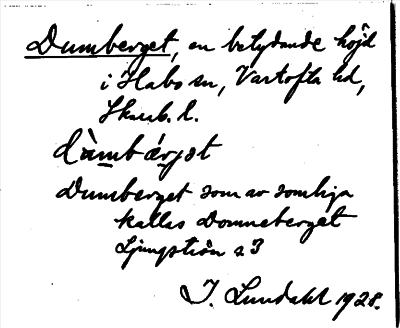 Dumberget, en betydande höjd
i Habo sn, Vartofta hd,
Skarab. l.
dùmbärjet
Dumberget som av somliga
kallas Domneberget
Ljungström s 3
I. Lundahl 1928.